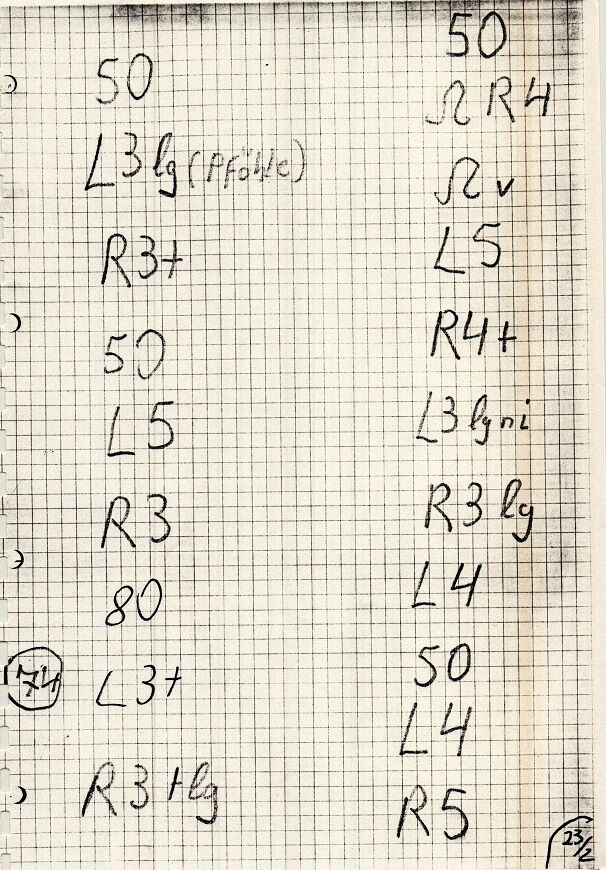 50
L3 lg (Pföhle)
R3+
50
L5
R3
80
74
L3+
R3+lg
50
Ω R4
Ω v
L5
R4+
L3 lg ni
R3 lg
L4
50
L4
R5
23/2